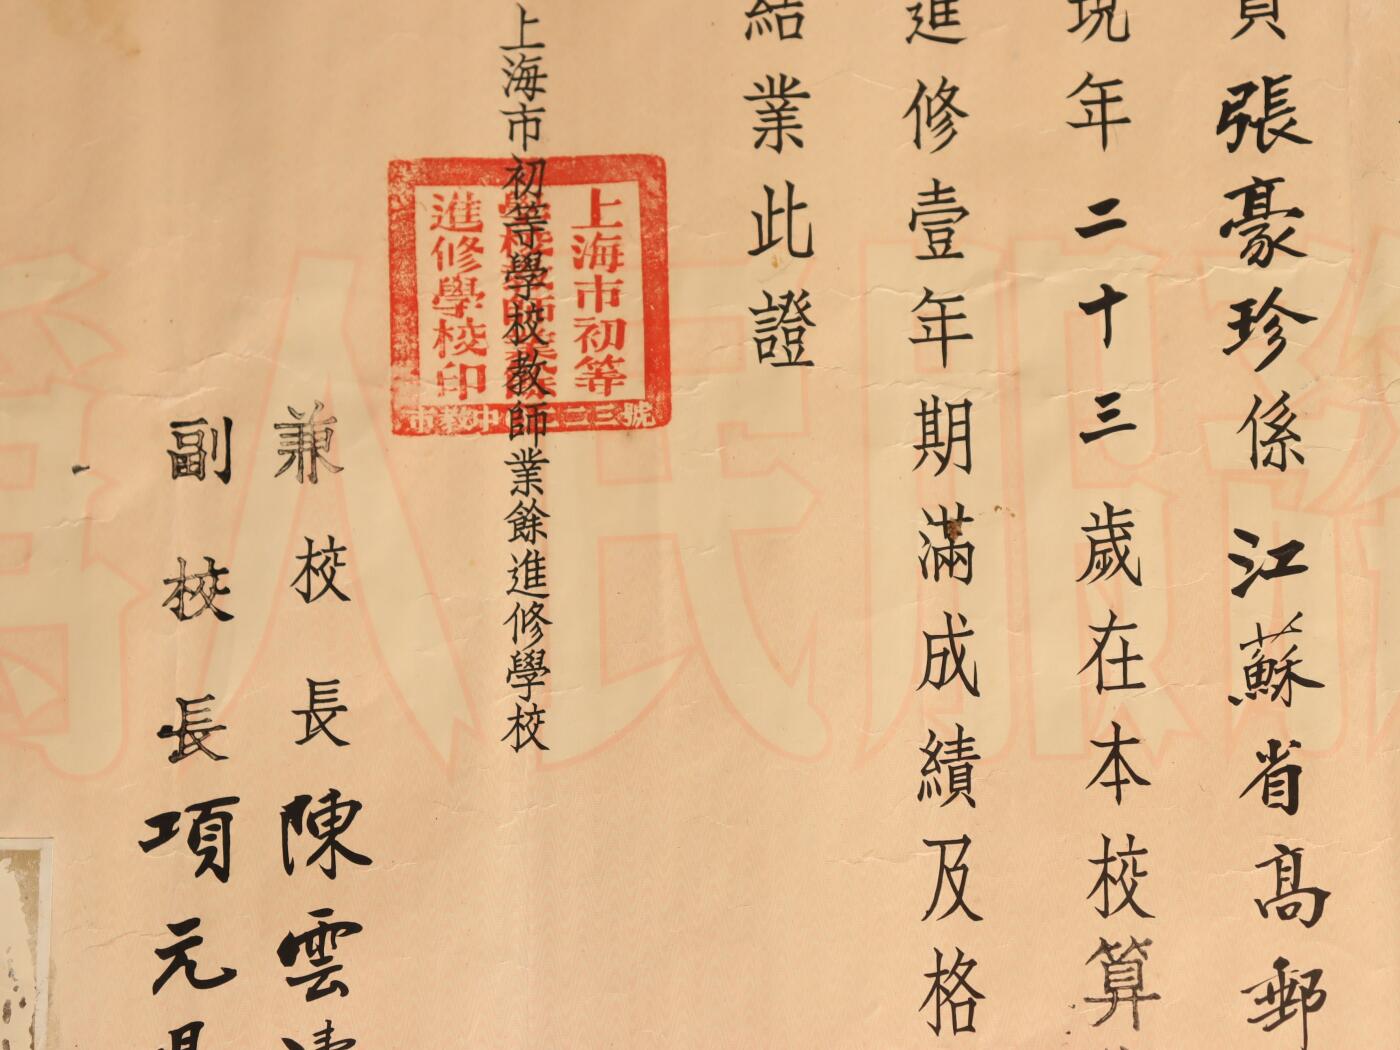 員張豪珍係江蘇省高郵
現年二十三歲在本校算
進修壹年期滿成績及格
結業此證
上海市初等學校教師業餘進修學校
上海市初等
學校教師業餘
進修學校印
兼校長陳雲濤
副校長項元
人民
服